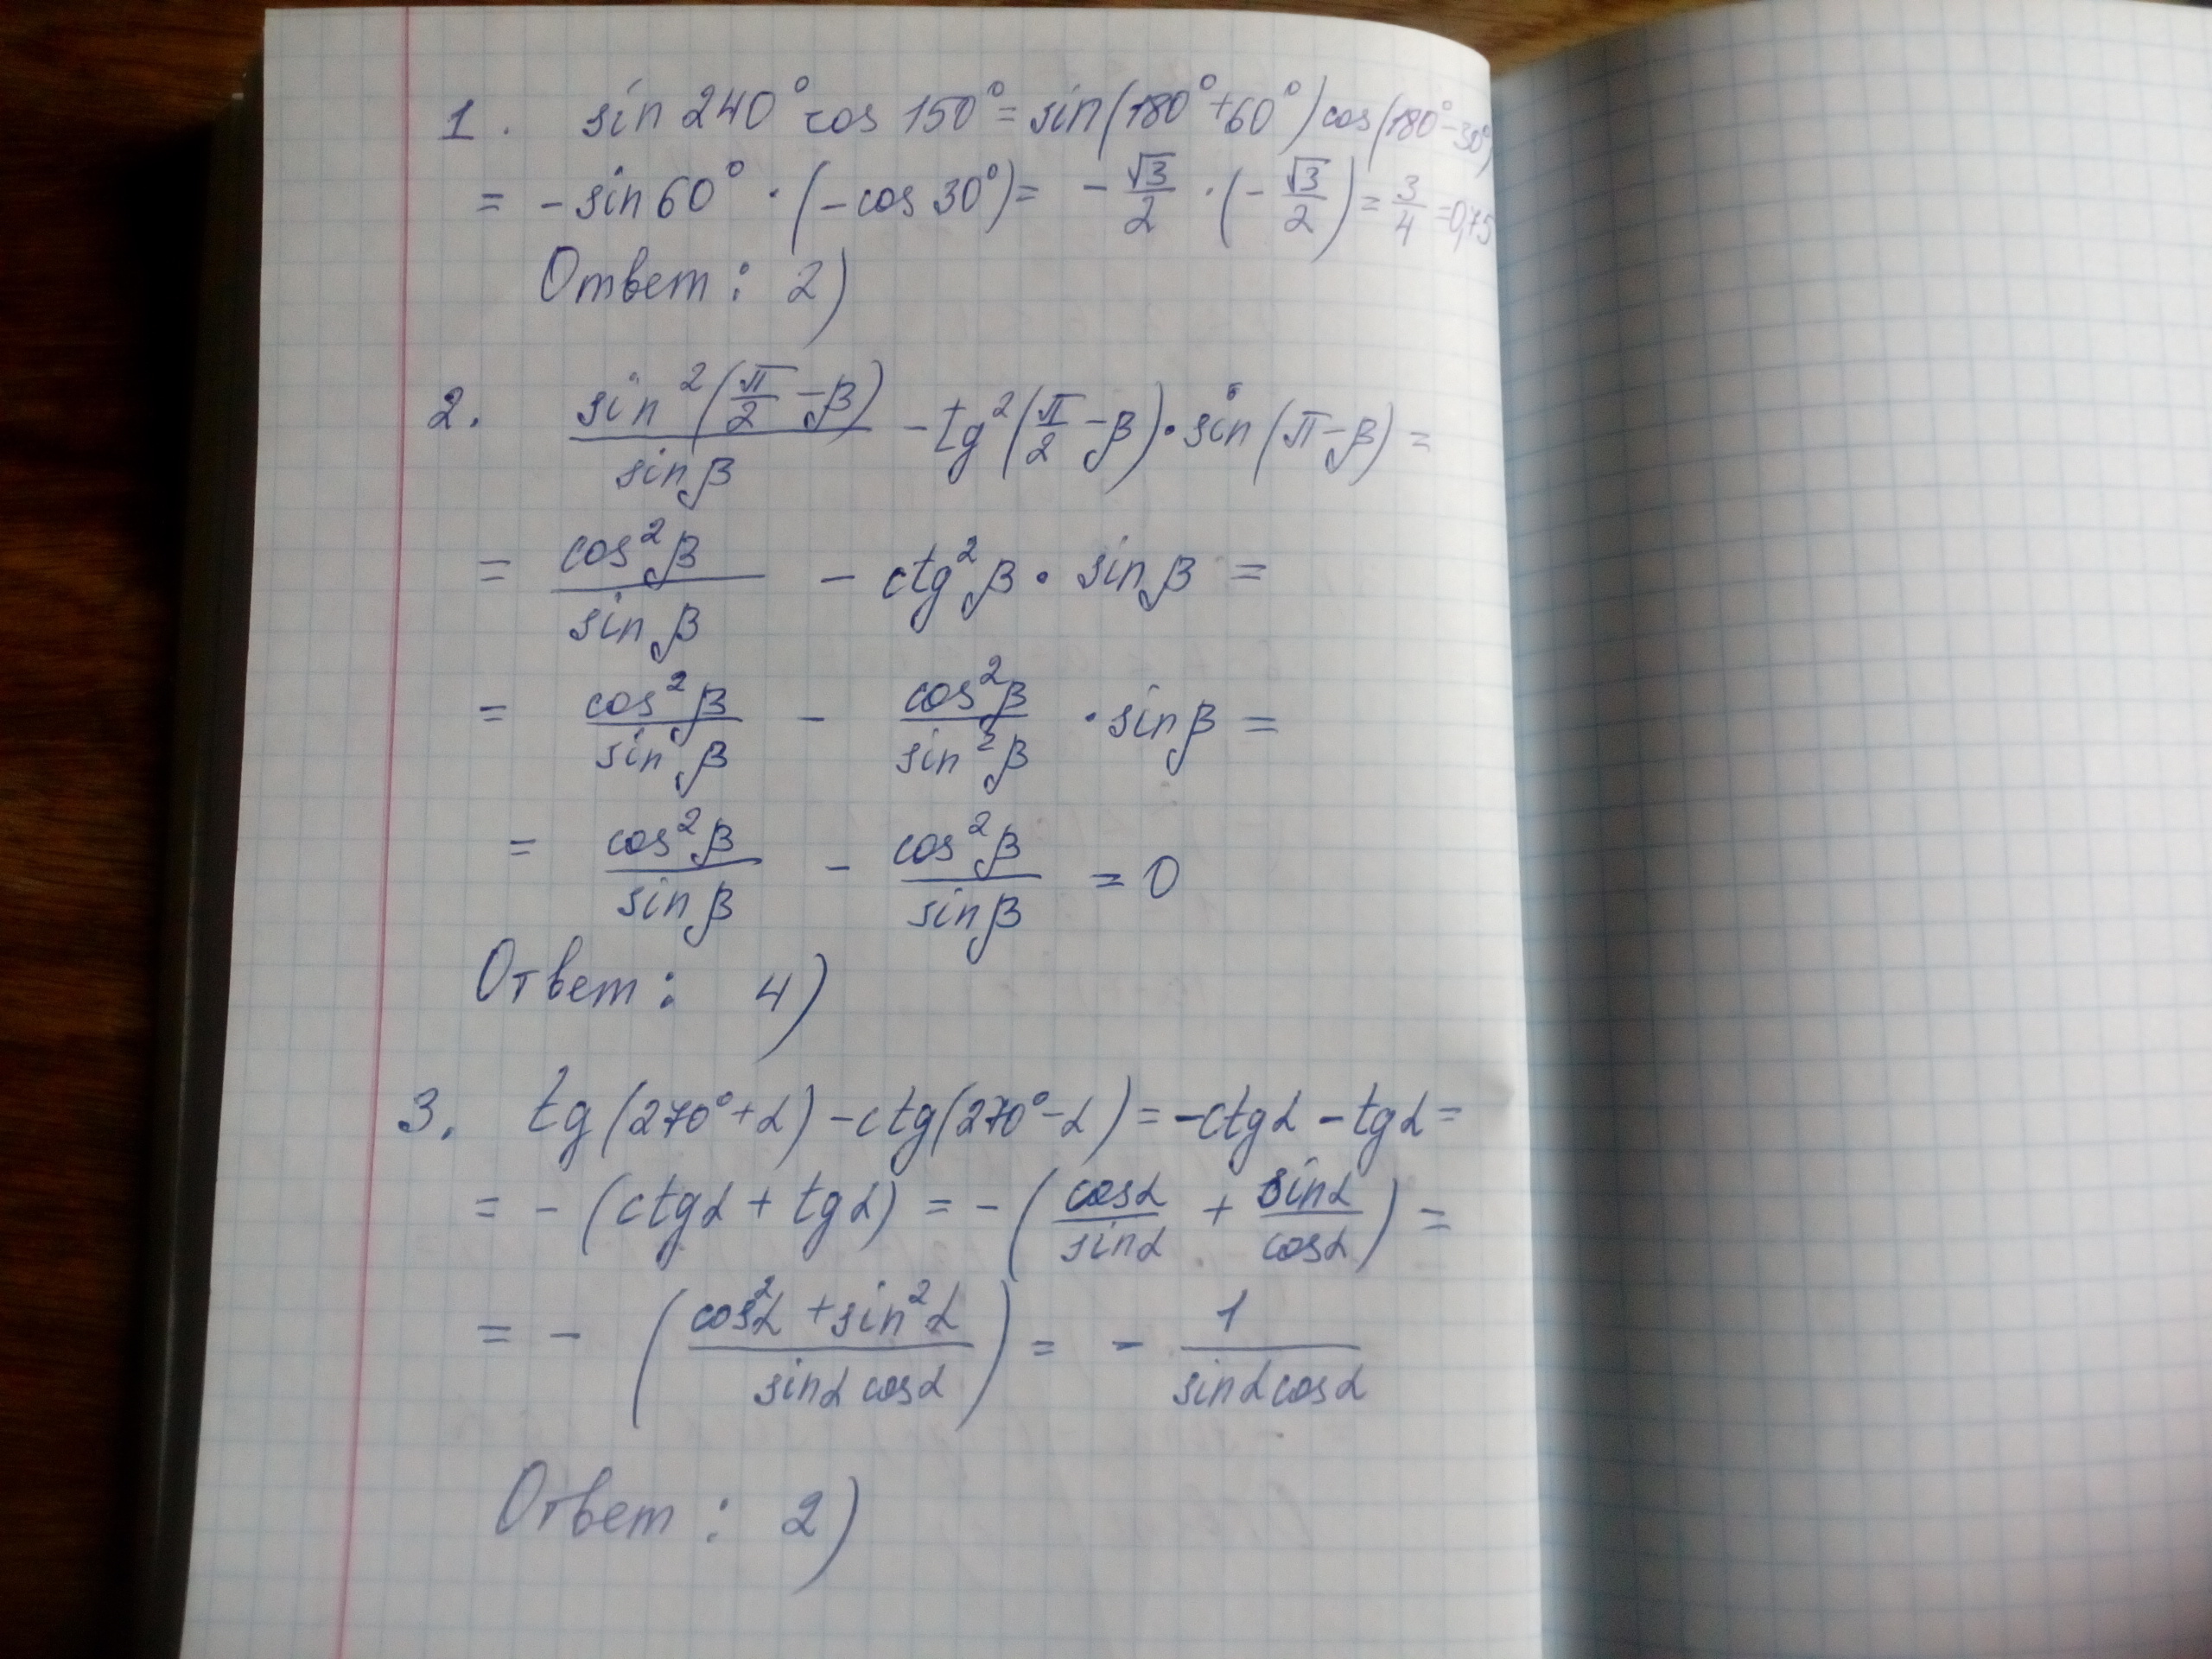 1. sin 240° cos 150° = sin(180°+60°) cos(180°-30°)
= -sin 60° · (-cos 30°) = -√3/2 · (-√3/2) = 3/4 = 0,75
Ответ: 2)
2. sin²(π/2 - β)/sin β - tg²(π/2 - β) · sin(π-β) =
= cos²β/sin β - ctg²β · sin β =
= cos²β/sin β - cos²β/sin²β · sin β =
= cos²β/sin β - cos²β/sin β = 0
Ответ: 4)
3. tg(270°+α) - ctg(270°-α) = -ctgα - tgα =
= -(ctgα + tgα) = -(cosα/sinα + sinα/cosα) =
= -((cos²α + sin²α)/(sinα cosα)) = - 1/(sinα cosα)
Ответ: 2)